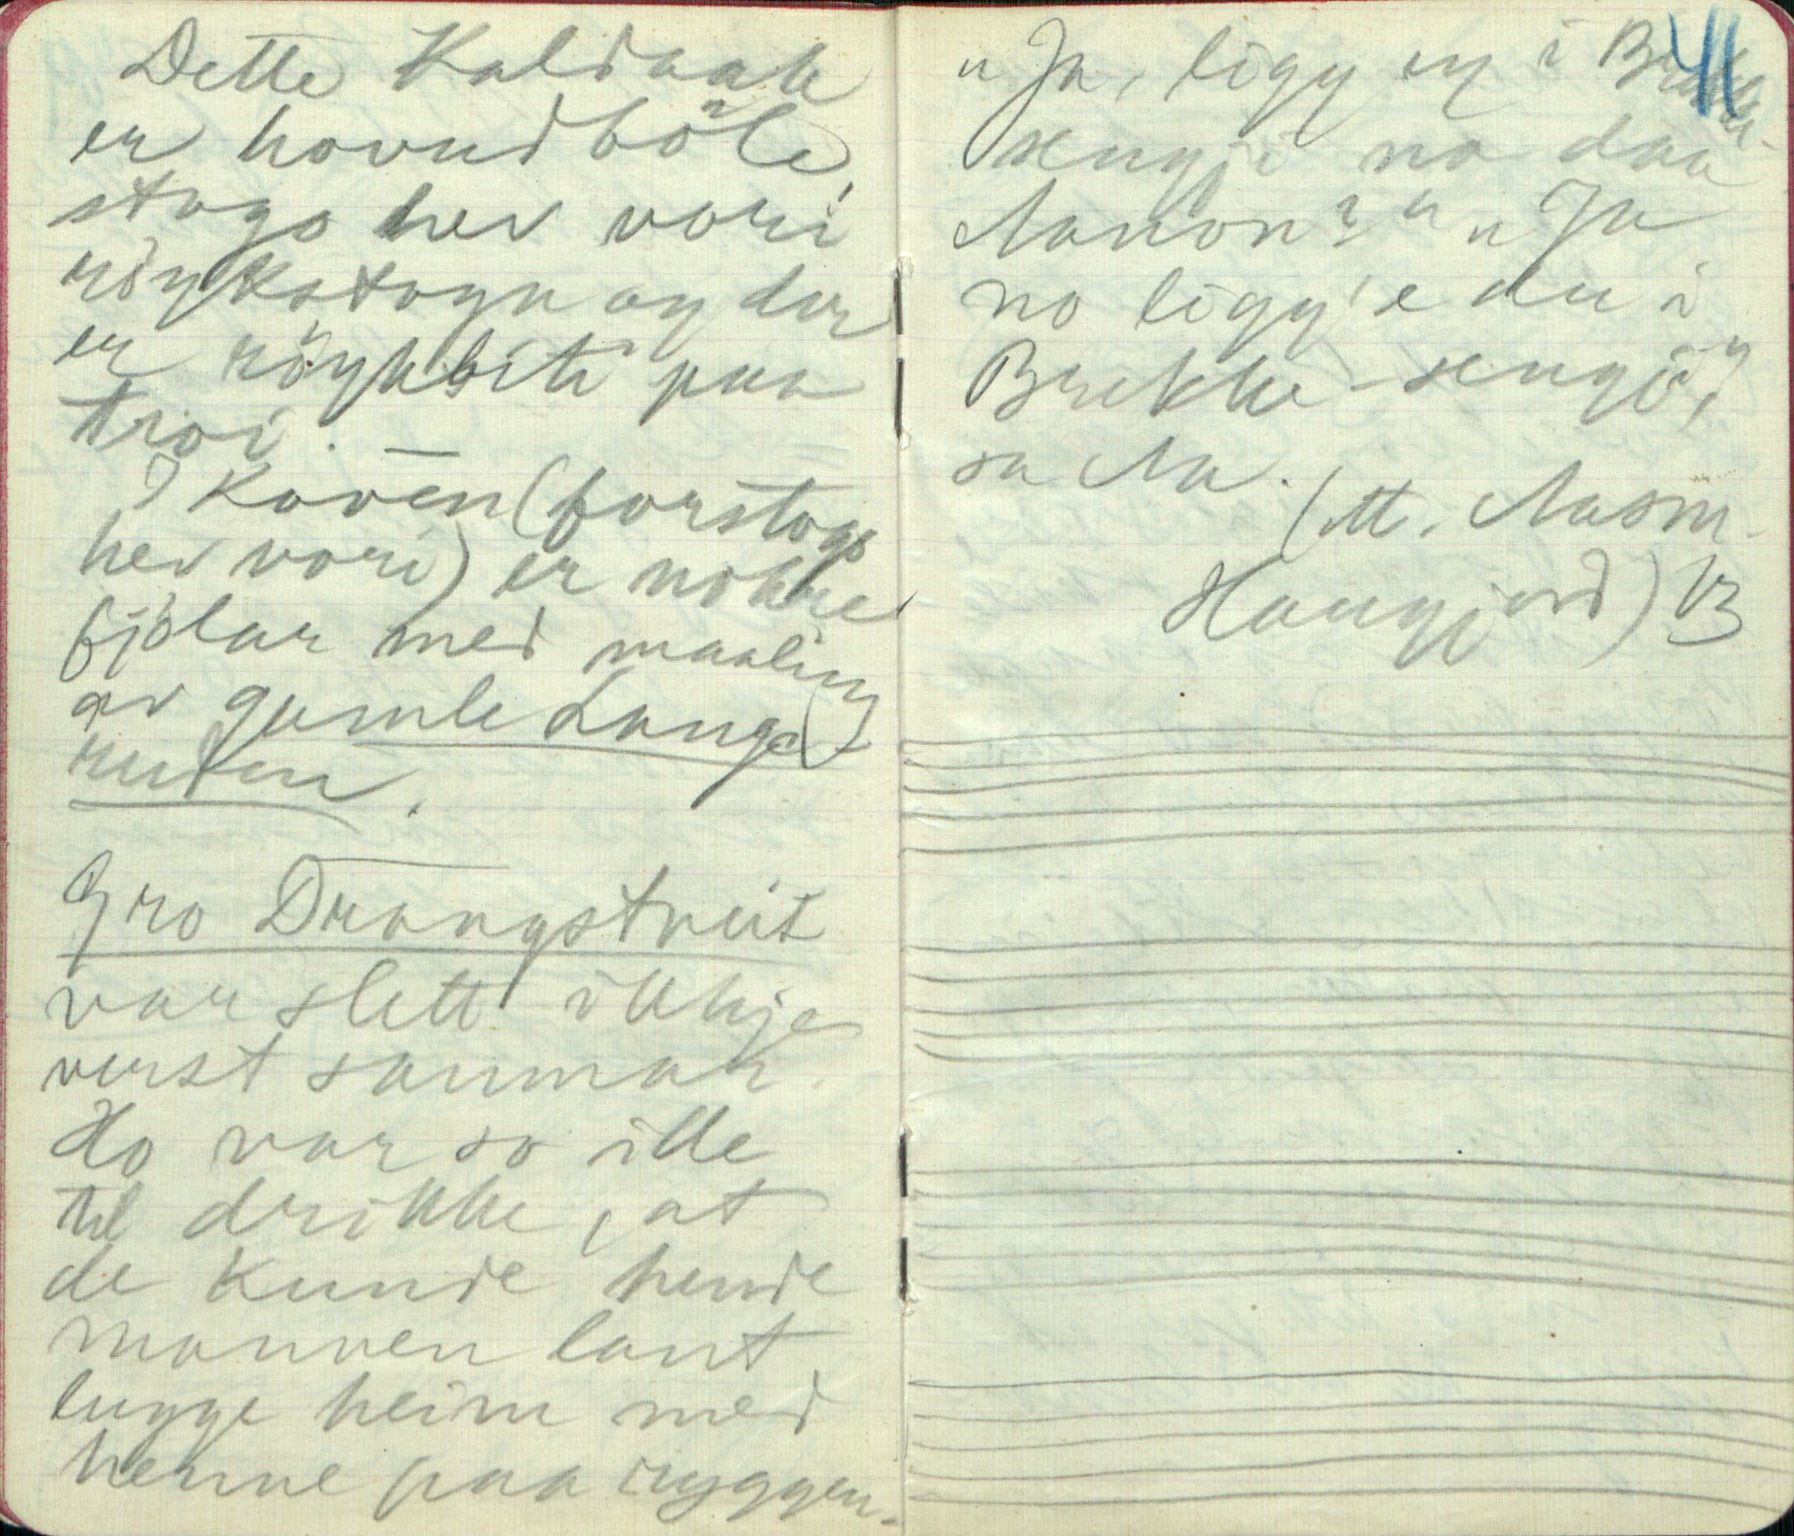 Dette Kaldbakk
er hovudböle,
stogo hev vori
röykstogu og der
er röykbite paa
troi. —
I Koven (forstogo
hev vori) er nokre
fjölar med maaling
av gamle Lauge-
ruden.
Gro Drangstveit
var slett ikkje
verst saumak.
Ho var so ille
til drikke, at
de kunde hende
mannen laut
lugge heim med
henne paa ryggen.
41
"Ja, ligg eg i Brekke-
sengji no daa
Aanon?" "Ja
no ligg'e du i
Brekke-sengji",
sa Aa.
(M. Aasm.
Haugjord) B